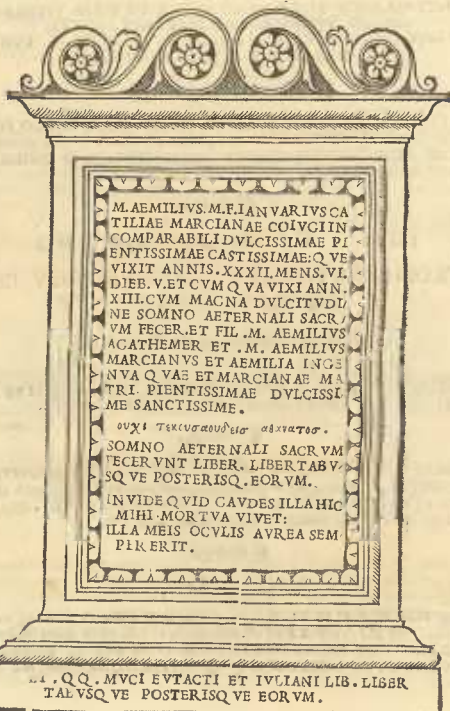 M. AEMILIVS. M. F. IANVARIVS CA
TILIAE MARCIANAE COIVGI IN
COMPARABILI DVLCISSIMAE PI
ENTISSIMAE CASTISSIMAE: QVE
VIXIT ANNIS. XXXII. MENS. VI.
DIEB. V. ET CVM QVA VIXI ANN.
XIII. CVM MAGNA DVLCITVDI/
NE SOMNO AETERNALI SACR/
VM FECER. ET FIL. M. AEMILIVS
AGATHEMER ET . M. AEMILIVS
MARCIANVS ET AEMILIA INGE
NVA QVAE ET MARCIANAE MA
TRI PIENTISSIMAE DVLCISSI
ME SANCTISSIME.
ουχι τεκευσαουδεισ αθχνατοσ.
SOMNO AETERNALI SACRVM
FECERVNT LIBER. LIBERTABV/
SQVE POSTERISQ. EORVM.
INVIDE QVID GAVDES ILLA HIC
MIHI MORTVA VIVET:
ILLA MEIS OCVLIS AVREA SEM
PER ERIT.
QQ. MVCI EVTACTI ET IVLIANI LIB. LIBER
TABVSQVE POSTERISQVE EORVM.